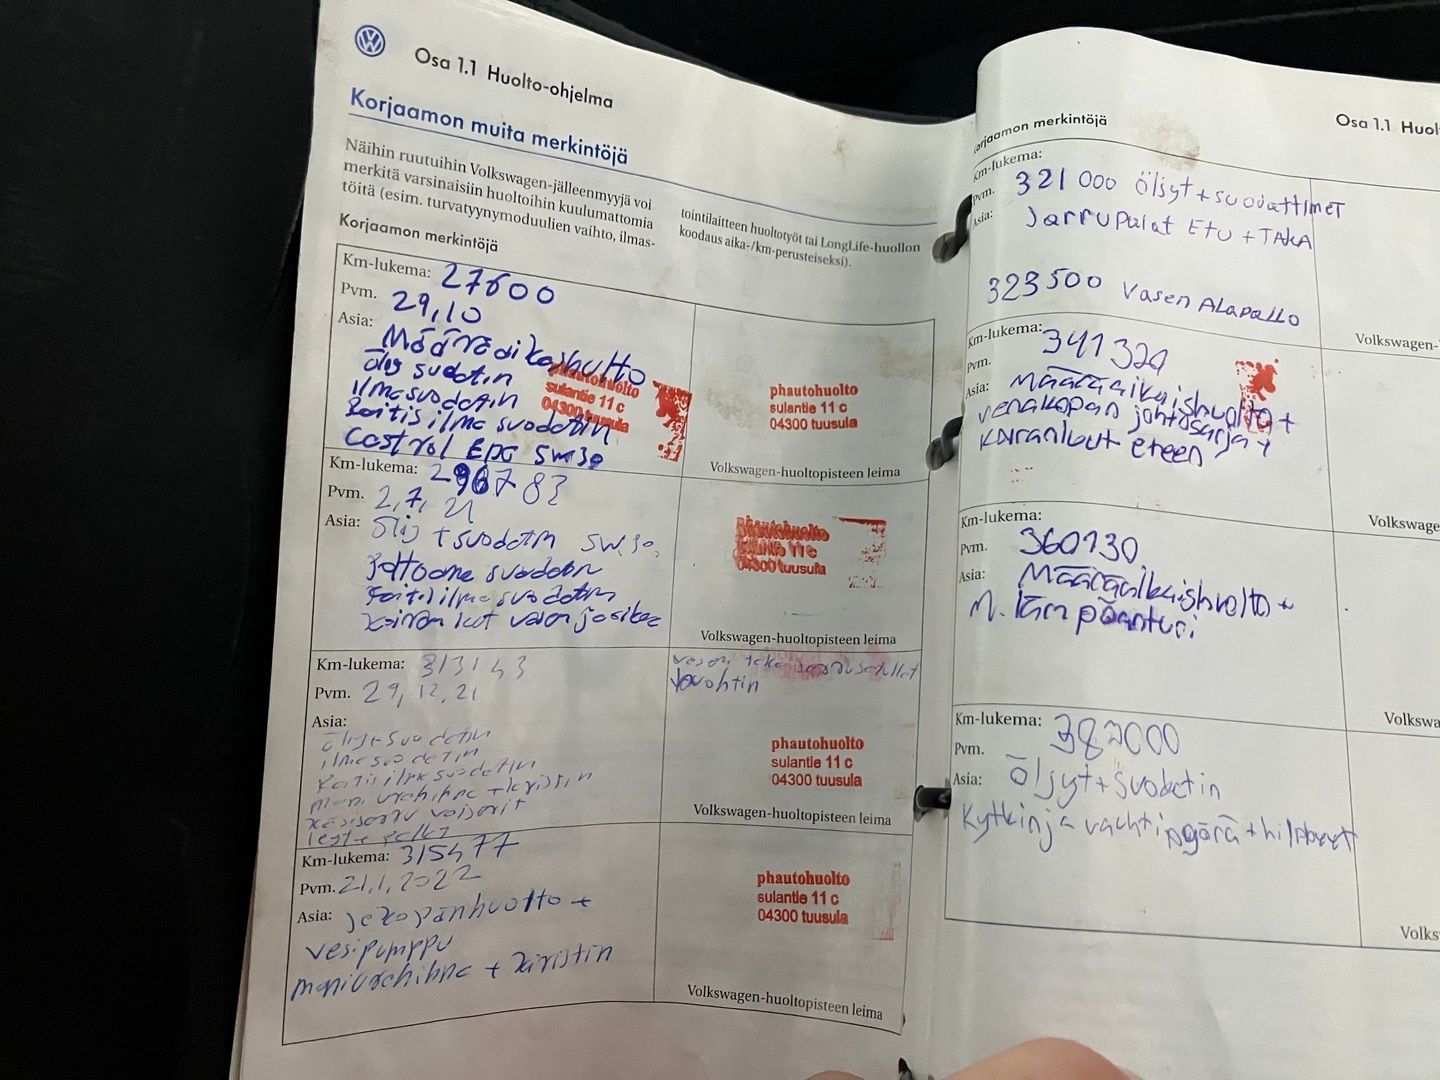 Osa 1.1 Huolto-ohjelma
Korjaamon muita merkintöjä
Näihin ruutuihin Volkswagen-jälleenmyyjä voi
merkitä varsinaisiin huoltoihin kuulumattomia
töitä (esim. turvatyynymoduulien vaihto, ilmas-
tointilaitteen huoltotyöt tai LongLife-huollon
koodaus aika-/km-perusteiseksi).
Korjaamon merkintöjä
Km-lukema: 27600
Pvm. 29,10
Asia: Määräaikashuolto
öljy suodatin
ilmasuodatin
Raitis ilma suodatin
Castrol 5w30
phautohuolto
sulantie 11 c
04300 tuusula
phautohuolto
sulantie 11 c
04300 tuusula
Volkswagen-huoltopisteen leima
Km-lukema: 296783
Pvm. 2,7, 21
Asia: Öljy + suodatin 5w30
suodatin
Raitis ilma suodatin
phautohuolto
sulantie 11 c
04300 tuusula
Volkswagen-huoltopisteen leima
Km-lukema: 313143
Pvm. 29,12,21
Asia:
öljy+suodatin
ilmasuodatin
Raitis ilmasuodatin
moniurahihna + kiristin
käsijarru vaijerit
vasen taka jarrusatulat
vaihtin
phautohuolto
sulantie 11 c
04300 tuusula
Volkswagen-huoltopisteen leima
Km-lukema: 315477
Pvm. 21,1,2022
Asia: jakopäänhuolto +
vesipumppu
moniurahihna + kiristin
phautohuolto
sulantie 11 c
04300 tuusula
Volkswagen-huoltopisteen leima
Osa 1.1 Huol
orjaamon merkintöjä
Km-lukema:
Pvm. 321 000 öljyt + suodattimet
Asia: Jarrupalat Etu + TAKA
323500 Vasen ALApallo
Km-lukema: 341320
Pvm.
Asia: Määräaikaishuolto +
venakopan johtosarja +
koiranluut eteen
Km-lukema:
Pvm. 360130
Asia: Määräaikaishuolto +
M. lämpöanturi
Km-lukema: 382000
Pvm.
Asia: Öljyt + suodatin
Kytkin ja vauhtipyörä + hilppeet
Volkswagen-
Volkswage
Volkswa
Volks